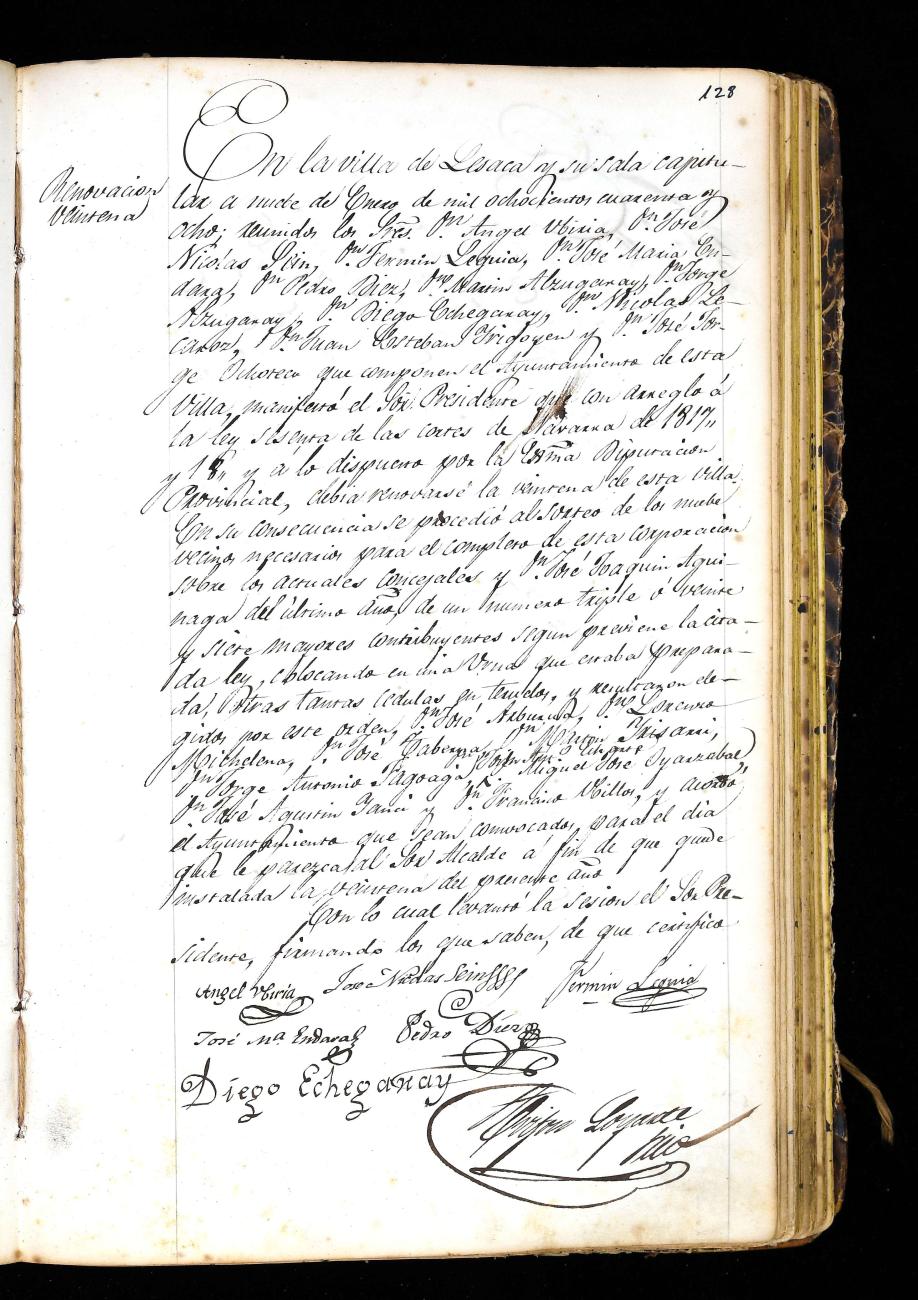 128
Renovacion
Veintena
En la villa de Lesaca y su sala capitu-
lar a nuebe de Enero de mil ochocientos cuarenta y
ocho; reunidos los Sres. Dn Angel Ubiria, Dn José
Nicolás Sein, Dn Fermin Leguia, Dn José Maria En-
dara, Dn Pedro Diez, Dn Martin Alzugaray, Dn Jorge
Alzugaray, Dn Diego Echegaray, Dn Nicolas Le-
caroz, Dn Juan Esteban Yrigoyen y Dn José Jor-
ge Ochoteco que componen el Ayuntamiento de esta
Villa, manifestó el Sor. Presidente que con arreglo á
la ley sesenta de las cortes de Navarra de 1817,,
y 18,, y á lo dispuesto por la Exma Diputacion
Provincial, debia renovarse la veintena de esta Villa.
En su consecuencia se procedió al sorteo de los nuebe
vecinos necesarios para el completo de esta corporacion
sobre los actuales concejales y Dn José Joaquin Agui-
naga del último año, de un numero triple ó veinte
y siete mayores contribuyentes segun previene la cita-
da ley, colocando en una Urna que estaba prepara-
da, otras tantas cédulas, y resultaron ele-
gidos por este orden, Dn José Dn Lorenzo
Michelena, Dn José Taberna, Dn Martin Yrisarri,
Dn Jorge Antonio Tagoaga, Miguel José Oyarzabal,
Dn José Agustin y Dn Francisco y acordó
el Ayuntamiento que sean convocados para el dia
que le parezca al Sor Alcalde á fin de que quede
instalada la veintena del presente año
Con lo cual levantó la sesion el Sor Pre-
sidente, firmando los que saben, de que certifico
Angel Ubiria José Nicolas Sein Fermin Leguia
José Ma Endara Pedro Diez
Diego Echegaray